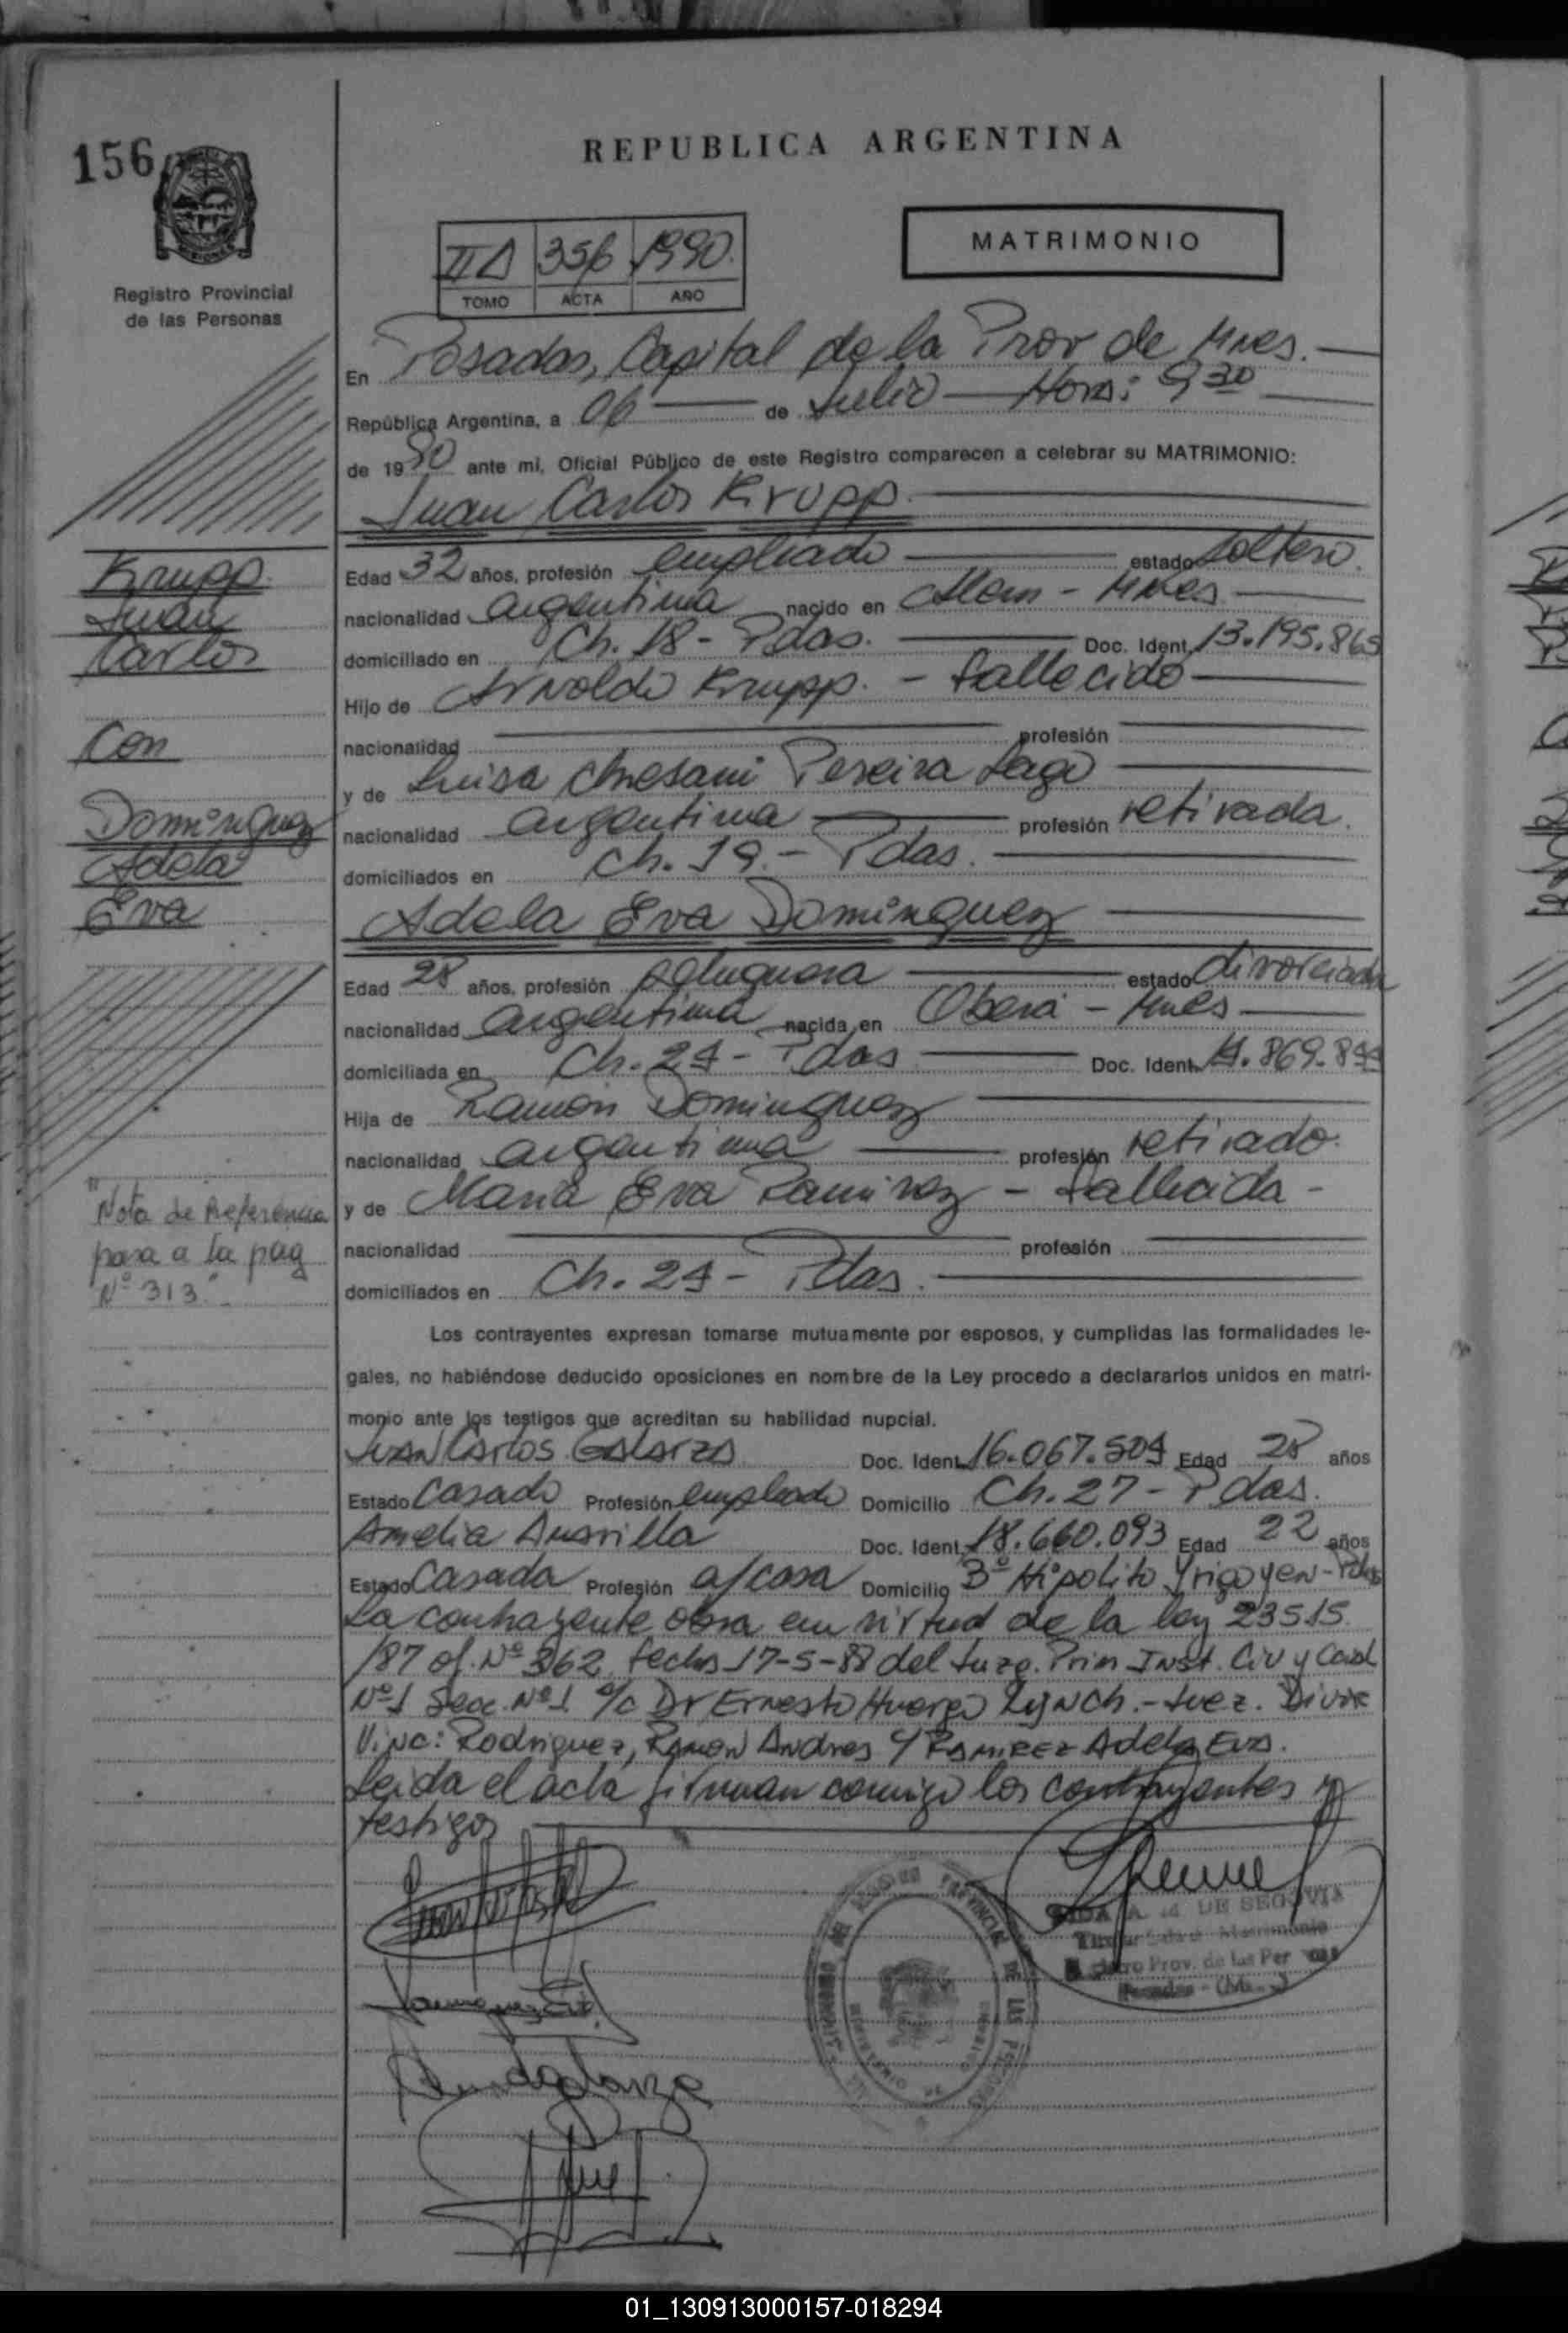 156
REPUBLICA ARGENTINA
MATRIMONIO
II 356 1990
TOMO ACTA AÑO
Registro Provincial
de las Personas
En Posadas, Capital de la Prov de Mnes.
República Argentina, a 06 de Julio Hora: 9 30
de 1990 ante mi, Oficial Público de este Registro comparecen a celebrar su MATRIMONIO:
Juan Carlos Krupp
Krupp
Juan
Carlos
Con
Dominguez
Adela
Eva
Edad 32 años, profesión empleado estado soltero.
nacionalidad argentina nacido en Alem - Mnes
domiciliado en Ch. 18 - Pdas. Doc. Ident. 13.195.865
Hijo de Arnoldo Krupp. - fallecido
nacionalidad profesión
y de Luisa Pereira Lago
nacionalidad argentina profesión retirada.
domiciliados en Ch. 19.- Pdas.
Adela Eva Dominguez
Edad 28 años, profesión peluquera estado divorciada
nacionalidad argentina nacida en Oberá - Mnes
domiciliada en Ch. 24 - Pdas Doc. Ident.
Hija de Ramon Dominguez
nacionalidad argentina profesión retirado.
y de Maria Eva Ramirez - fallecida -
nacionalidad profesión
domiciliados en Ch. 24 - Pdas.
"Nota de Referencia
pasa a la pag
Nº 313."
Los contrayentes expresan tomarse mutuamente por esposos, y cumplidas las formalidades le-
gales, no habiéndose deducido oposiciones en nombre de la Ley procedo a declararlos unidos en matri-
monio ante los testigos que acreditan su habilidad nupcial.
Juan Carlos Galarza Doc. Ident. 16.067.504 Edad 28 años
Estado Casado Profesión empleado Domicilio Ch. 27 - Pdas.
Amelia Doc. Ident. 18.660.093 Edad 22 años
Estado Casada Profesión q/casa Domicilio 3º Hipolito Yrigoyen - Pdas
La contrayente obra en virtud de la ley 23515
/87 of. Nº 362 fecha 17-5-88 del Juzg. Prim Inst. Civ y
Nº1 Secc. Nº1 a/c Dr Ernesto Huergo Lynch.- Juez.
Vinc: Rodriguez, Ramon Andres y Ramirez Adela Eva.
Leida el acta firman conmigo los contrayentes y
testigos
DE SEGOVIA
Prov. de las Per
01_130913000157-018294